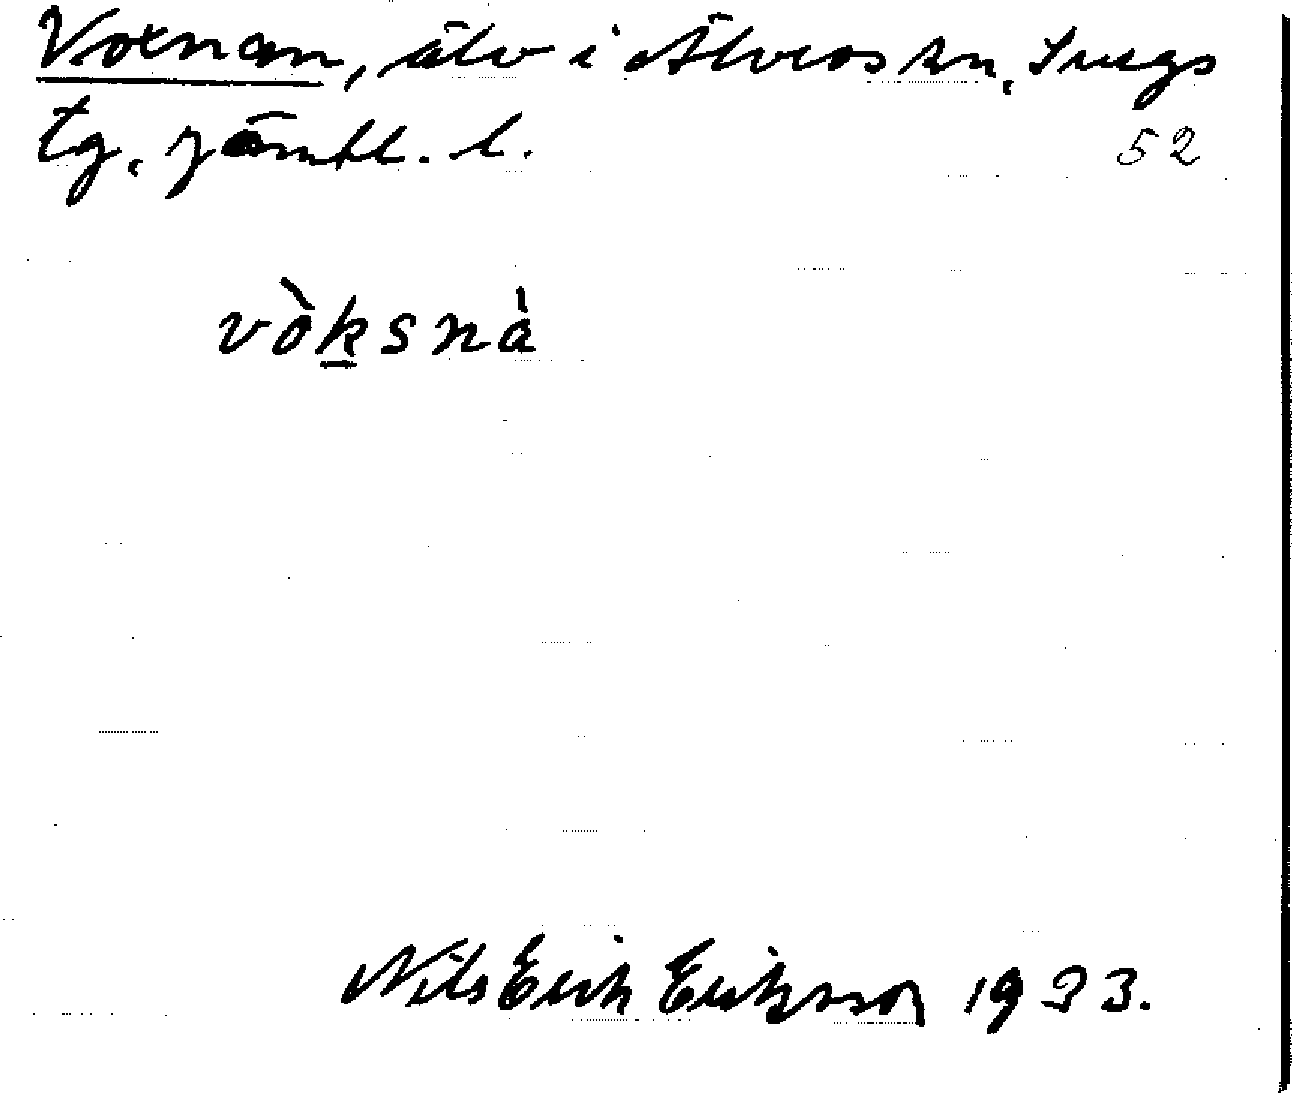 Voxnan, älv i Älvros sn, Svegs
tg, Jämtl. l.
52
vòksnà
Nils Erik Eriksson 1933.